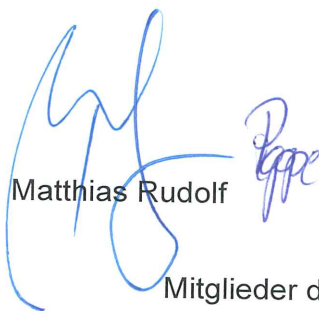 Matthias Rudolf
Mitglieder d